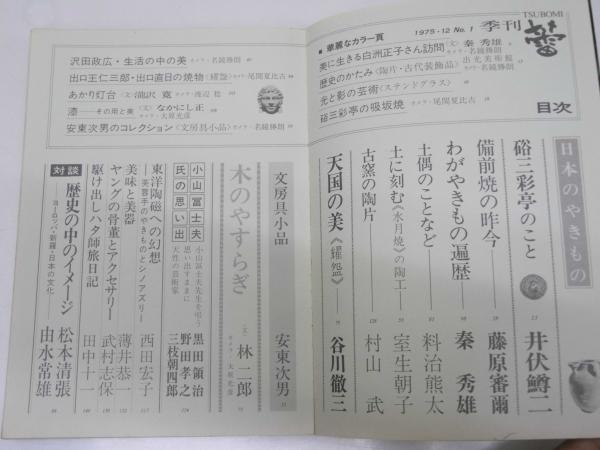 季刊
TSUBOMI
蕾
1975・12 No.1
目次
■華麗なカラー頁
美に生きる白洲正子さん訪問〈文〉秦 秀雄 カメラ・名鏡勝朗
歴史のかたみ〈陶片・古代装飾品〉出光美術館
光と影の芸術〈ステンドグラス〉
硲三彩亭の吸坂焼 カメラ・尾関夏比古
沢田政広・生活の中の美 カメラ・名鏡勝朗
出口王仁三郎・出口直日の焼物〈耀盌〉カメラ・尾関夏比古
あかり灯台〈文〉瀧沢 寛 カメラ・渡辺 稔
漆――その用と美〈文〉なかにし正 カメラ・大原光彦
安東次男のコレクション〈文房具小品〉カメラ・名鏡勝朗
日本のやきもの
硲三彩亭のこと 井伏鱒二
備前焼の昨今 藤原審爾
わがやきもの遍歴 秦 秀雄
土偶のことなど 料治熊太
土に刻む《水月焼》の陶工 室生朝子
古窯の陶片 村山 武
天国の美《耀盌》 谷川徹三
文房具小品 安東次男
木のやすらぎ〈文〉林二郎 カメラ・大原光彦
小山冨士夫氏の思い出
小山冨士夫先生を弔う 黒田領治
思い出すままに 野田孝之
天性の芸術家 三枝朝四郎
東洋陶磁への幻想 ――芙蓉手のやきものとシノアズリー 西田宏子
美味と美器 薄井恭一
ヤングの骨董とアクセサリー 武村志保
駆け出しハタ師旅日記 田中十一
対談
歴史の中のイメージ ――ヨーロッパ・新羅・日本の文化――
松本清張
由水常雄